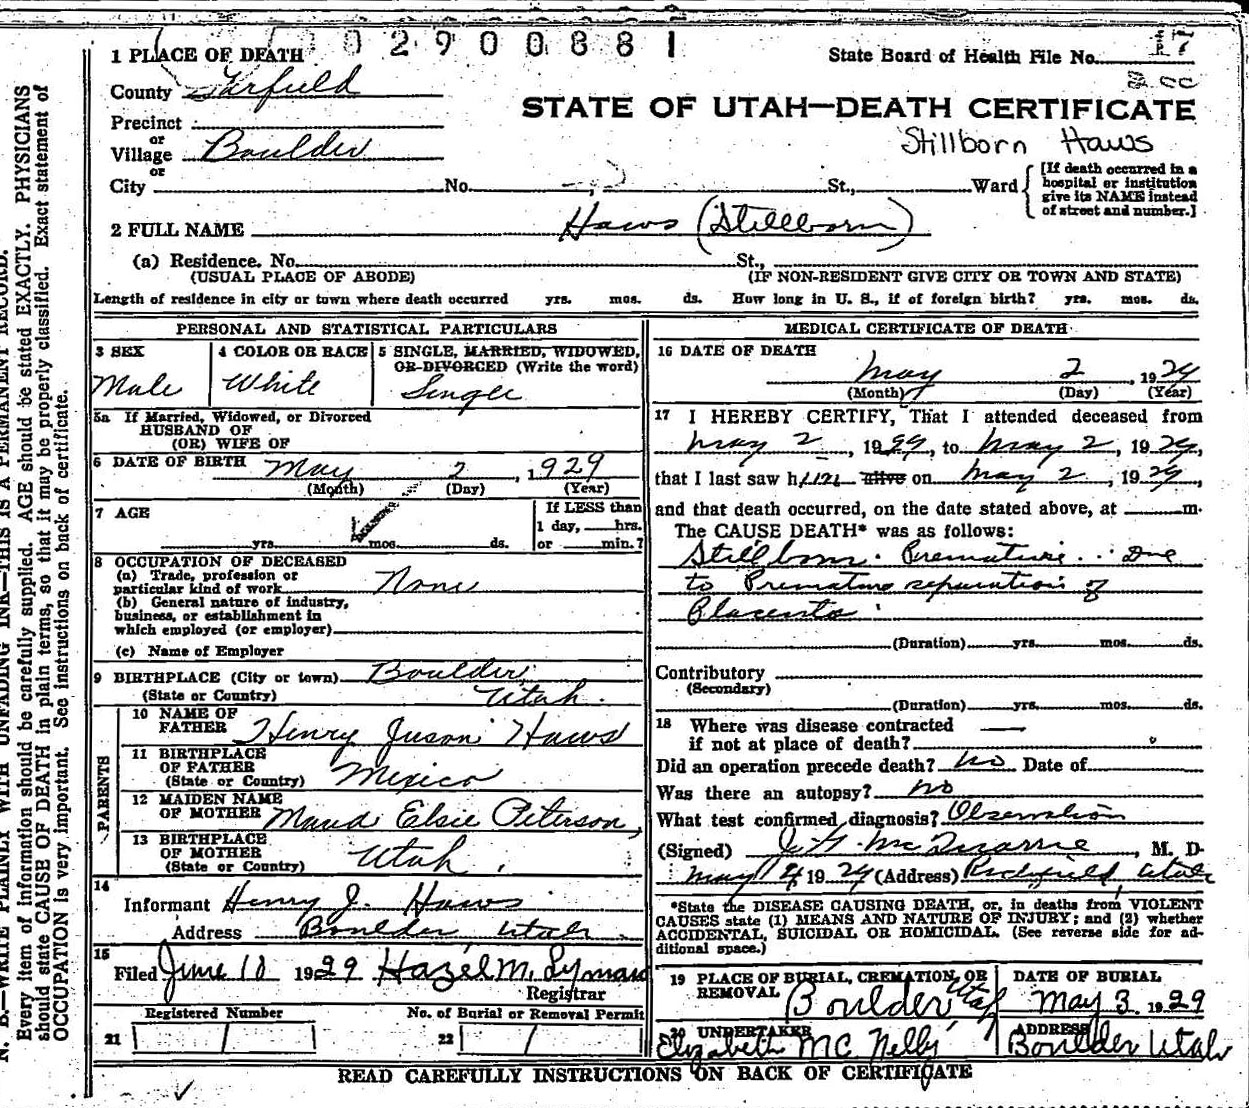 N. B.—WRITE PLAINLY WITH UNFADING INK—THIS IS A PERMANENT RECORD.
Every item of information should be carefully supplied. AGE should be stated EXACTLY. PHYSICIANS
should state CAUSE OF DEATH in plain terms, so that it may be properly classified. Exact statement of
OCCUPATION is very important. See instructions on back of certificate.
02900881
1 PLACE OF DEATH
State Board of Health File No. 17
County Garfield
STATE OF UTAH—DEATH CERTIFICATE
Precinct
or
Stillborn Haws
Village Boulder
or
City No. St., Ward
[If death occurred in a
hospital or institution
give its NAME instead
of street and number.]
2 FULL NAME Haws (Stillborn)
(a) Residence. No. St.,
(USUAL PLACE OF ABODE) (IF NON-RESIDENT GIVE CITY OR TOWN AND STATE)
Length of residence in city or town where death occurred yrs. mos. ds. How long in U. S., if of foreign birth? yrs. mos. ds.
PERSONAL AND STATISTICAL PARTICULARS
3 SEX
Male
4 COLOR OR RACE
White
5 SINGLE, MARRIED, WIDOWED,
OR DIVORCED (Write the word)
Single
5a If Married, Widowed, or Divorced
HUSBAND OF
(OR) WIFE OF
6 DATE OF BIRTH May 2, 1929
(Month) (Day) (Year)
7 AGE
yrs. mos. ds.
If LESS than
1 day, hrs.
or min.?
8 OCCUPATION OF DECEASED
(a) Trade, profession or
particular kind of work None
(b) General nature of industry,
business, or establishment in
which employed (or employer)
(c) Name of Employer
9 BIRTHPLACE (City or town) Boulder,
(State or Country) Utah.
PARENTS
10 NAME OF
FATHER Henry Juson Haws
11 BIRTHPLACE
OF FATHER
(State or Country) Mexico
12 MAIDEN NAME
OF MOTHER Maud Elsie Peterson,
13 BIRTHPLACE
OF MOTHER
(State or Country) Utah.
14
Informant Henry J. Haws
Address Boulder, Utah.
15
Filed June 10 1929 Hazel M. Lyman
Registrar
Registered Number No. of Burial or Removal Permit
21 22
MEDICAL CERTIFICATE OF DEATH
16 DATE OF DEATH
May 2, 1929
(Month) (Day) (Year)
17 I HEREBY CERTIFY, That I attended deceased from
May 2, 1929, to May 2, 1929,
that I last saw him alive on May 2, 1929,
and that death occurred, on the date stated above, at m.
The CAUSE DEATH* was as follows:
Stillborn. Premature. Due
to Premature separation of
Placenta.
(Duration) yrs. mos. ds.
Contributory
(Secondary)
(Duration) yrs. mos. ds.
18 Where was disease contracted
if not at place of death?
Did an operation precede death? No Date of
Was there an autopsy? No
What test confirmed diagnosis? Observation
(Signed) McQuarrie, M. D-
May 1929 (Address) Richfield, Utah
*State the DISEASE CAUSING DEATH, or, in deaths from VIOLENT
CAUSES state (1) MEANS AND NATURE OF INJURY; and (2) whether
ACCIDENTAL, SUICIDAL OR HOMICIDAL. (See reverse side for ad-
ditional space.)
19 PLACE OF BURIAL, CREMATION, OR
REMOVAL Boulder Utah
DATE OF BURIAL
May 3, 1929
20 UNDERTAKER
Elizabeth McNelly
ADDRESS
Boulder Utah
READ CAREFULLY INSTRUCTIONS ON BACK OF CERTIFICATE